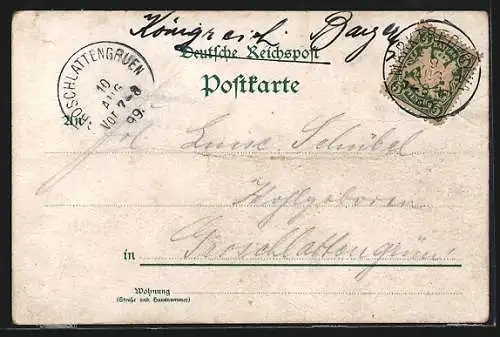 Königreich Bayern
Deutsche Reichspost
Postkarte
GROSCHLATTENGRUEN
10
AUG
Vor 7-8
99.
An
Frl. Luise Schübel
Wohlgeboren
in Groschlattengrün
Wohnung
(Straße und Hausnummer)